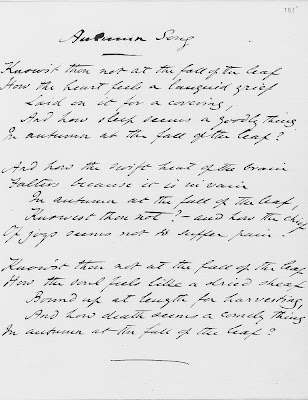 151
Autumn Song
Knowst thou not at the fall of the leaf
How the heart feels a languid grief
Laid on it for a covering,
And how sleep seems a goodly thing
In autumn at the fall of the leaf?
And how the swift beat of the brain
Falters because it is in vain
In autumn at the fall of the leaf,
Knowest thou not? - and how the chief
Of joys seems not to suffer pain.
Know'st thou not at the fall of the leaf
How the soul feels like a dried sheaf
Bound up at length for harvesting,
And how death seems a comely thing
In autumn at the fall of the leaf?